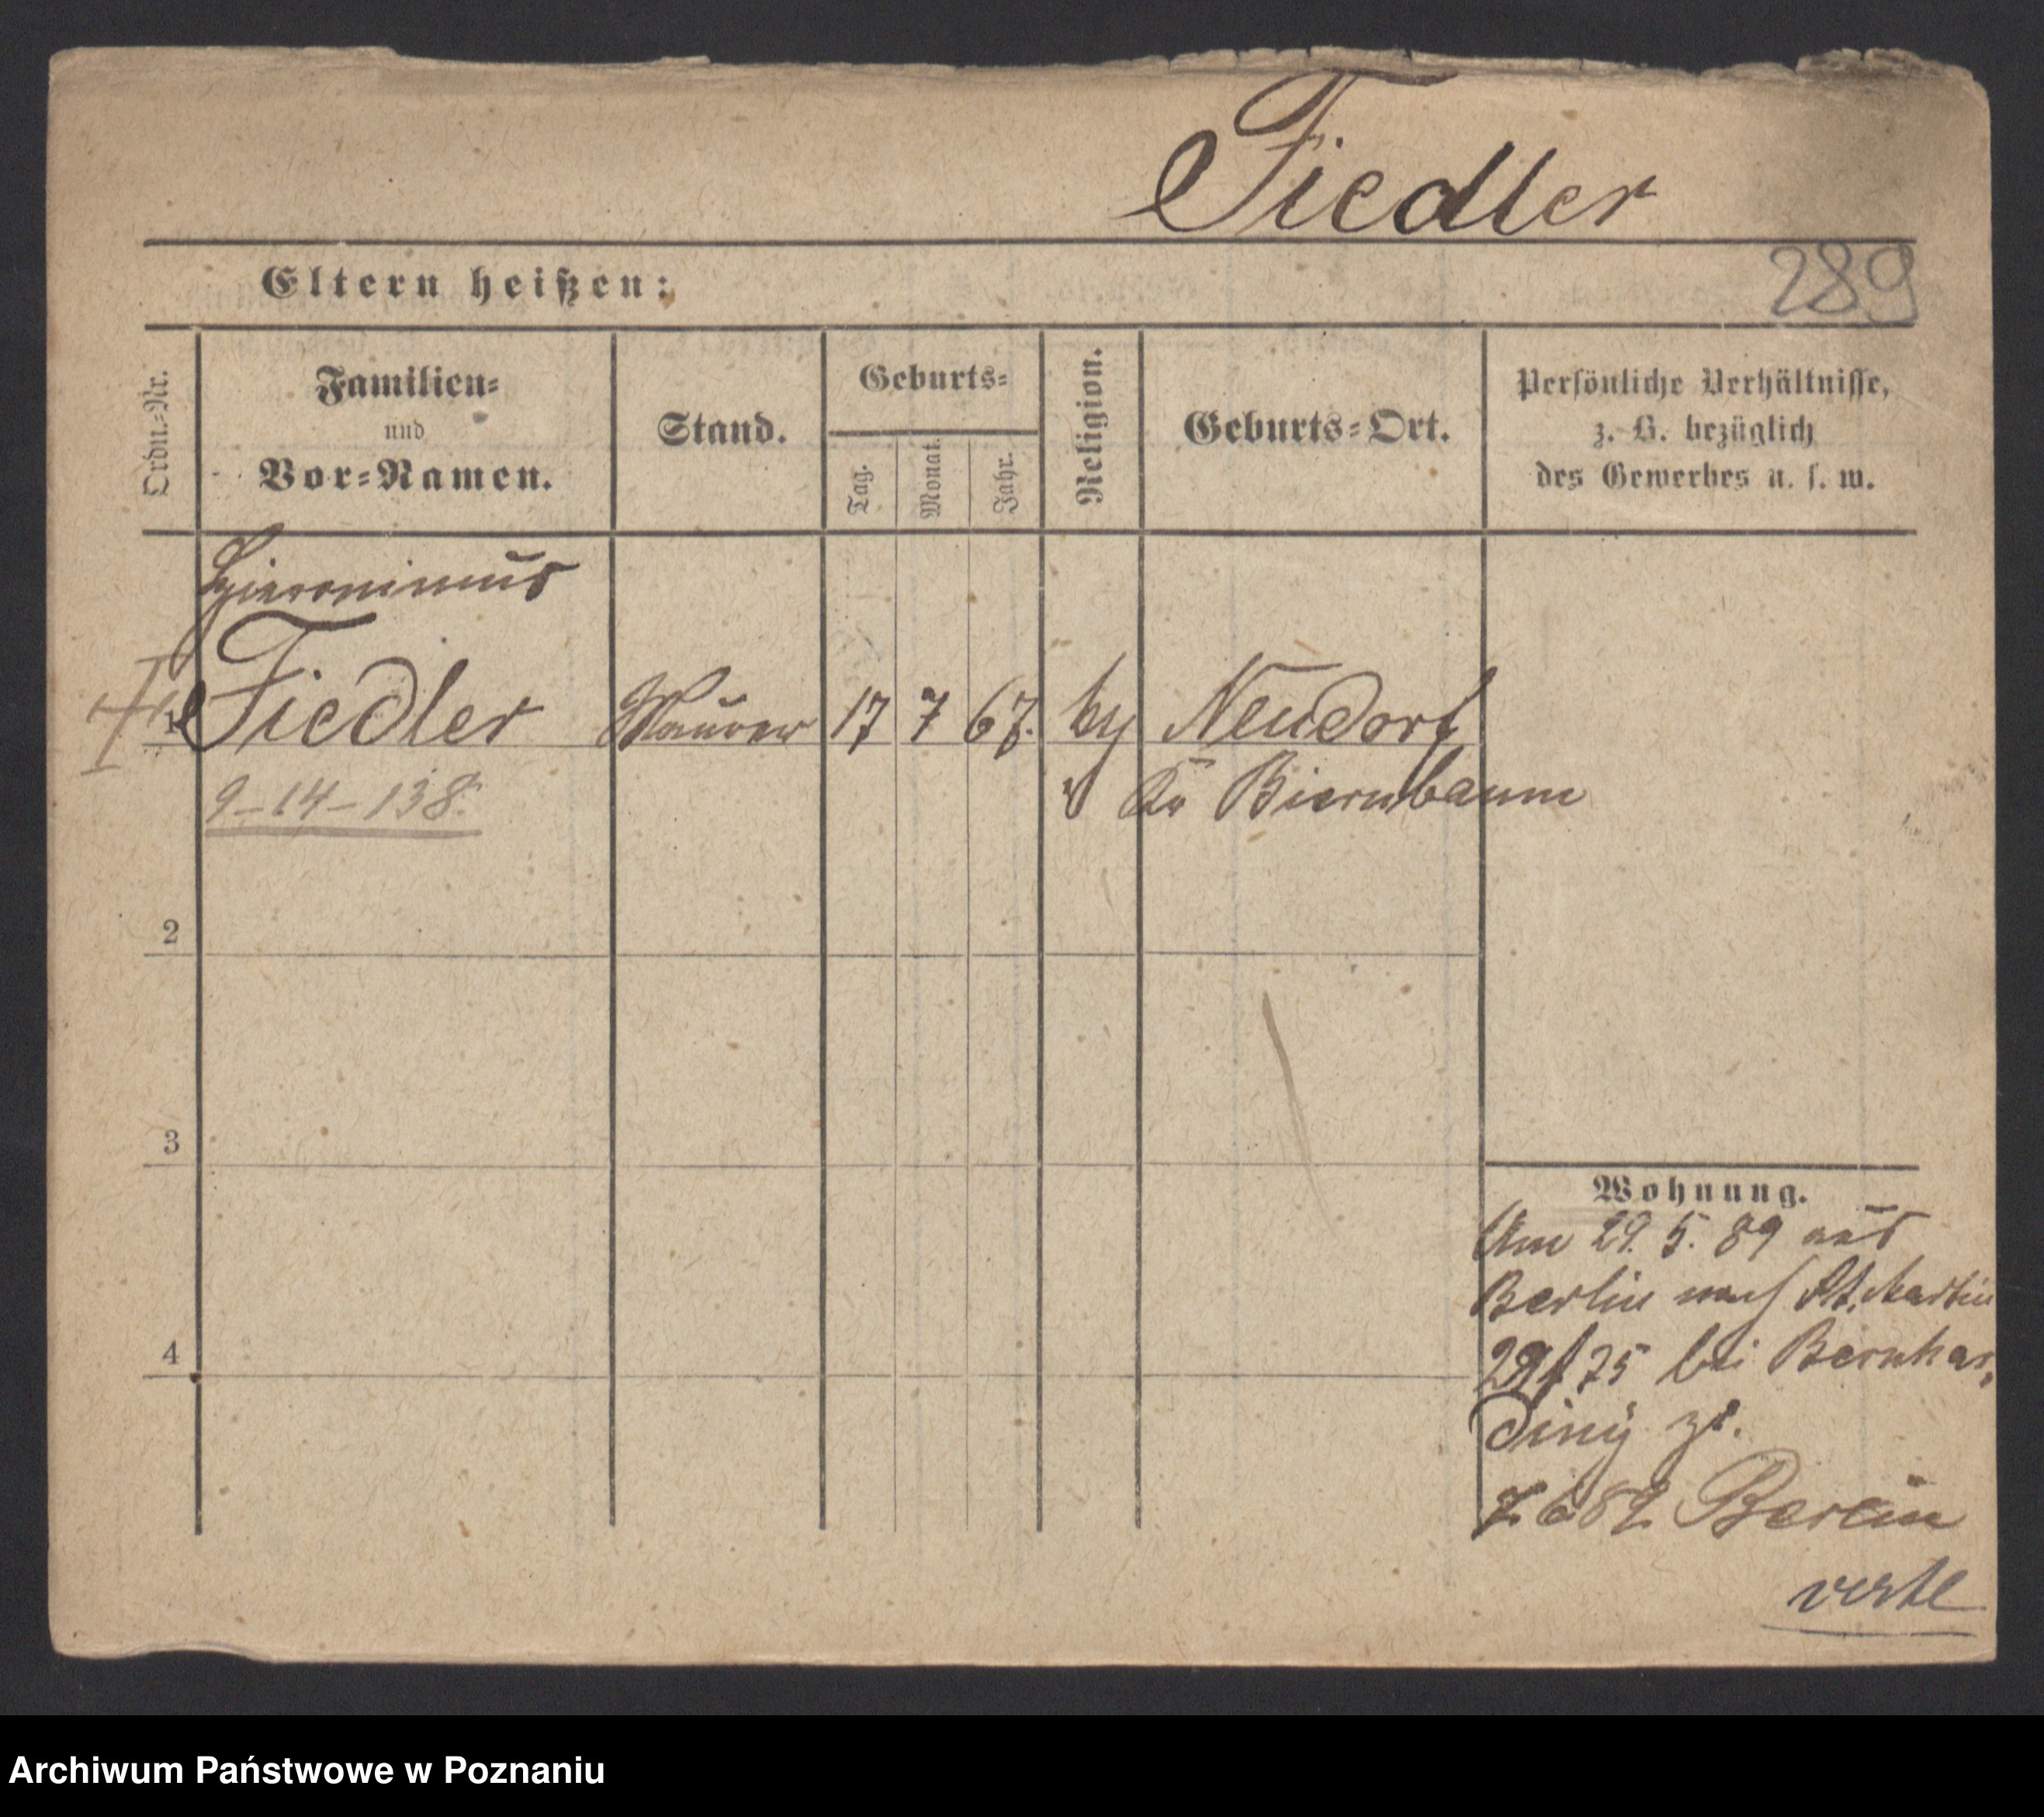 Fiedler
Eltern heißen:
289
Ordn.-Nr.
Familien-
und
Vor-Namen.
Stand.
Geburts-
Tag.
Monat.
Jahr.
Religion.
Geburts-Ort.
Persönliche Verhältnisse,
z. B. bezüglich
des Gewerbes u. s. w.
Hieronimus
1 Fiedler Maurer 17 7 67. Neudorf
9-14-138. Kr Biernbaum
2
3
4
Wohnung.
Am 29. 5. 89 aus
Berlin nach St. Martin
75 bei Bernhar-
diny
Berlin
verte
Archiwum Państwowe w Poznaniu